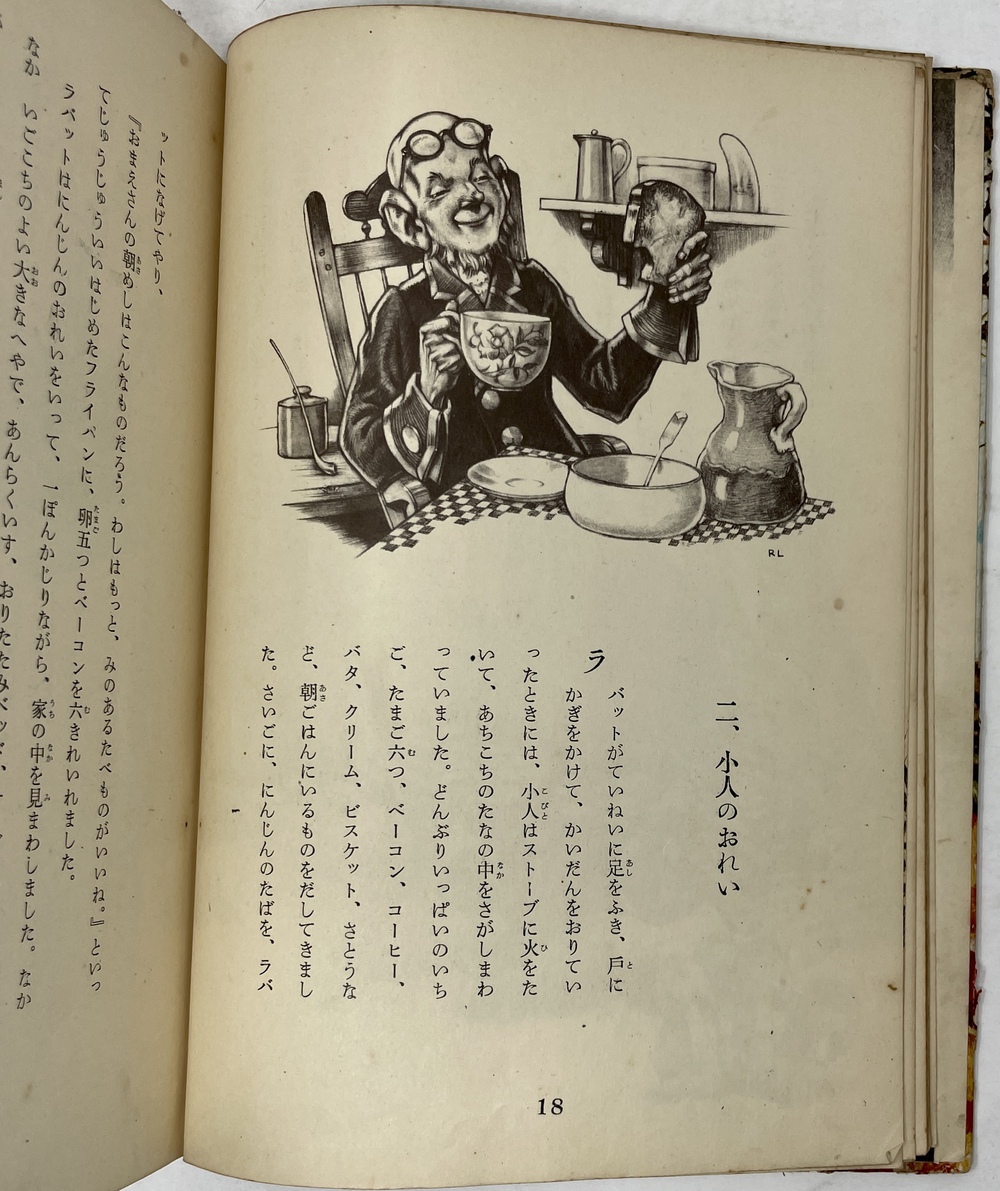 二、小人のおれい
ラバットがていねいに足をふき、戸に
かぎをかけて、かいだんをおりてい
ったときには、小人はストーブに火をた
いて、あちこちのたなの中をさがしまわ
っていました。どんぶりいっぱいのいち
ご、たまご六つ、ベーコン、コーヒー、
バタ、クリーム、ビスケット、さとうな
ど、朝ごはんにいるものをだしてきまし
た。さいごに、にんじんのたばを、ラバ
18
RL
ットになげてやり、
『おまえさんの朝めしはこんなものだろう。わしはもっと、みのあるたべものがいいね。』といっ
てじゅうじゅういいはじめたフライパンに、卵五つとベーコンを六きれいれました。
ラバットはにんじんのおれいをいって、一ぽんかじりながら、家の中を見まわしました。なか
なか いごこちのよい大きなへやで、あんらくいす、おりたたみベッド、